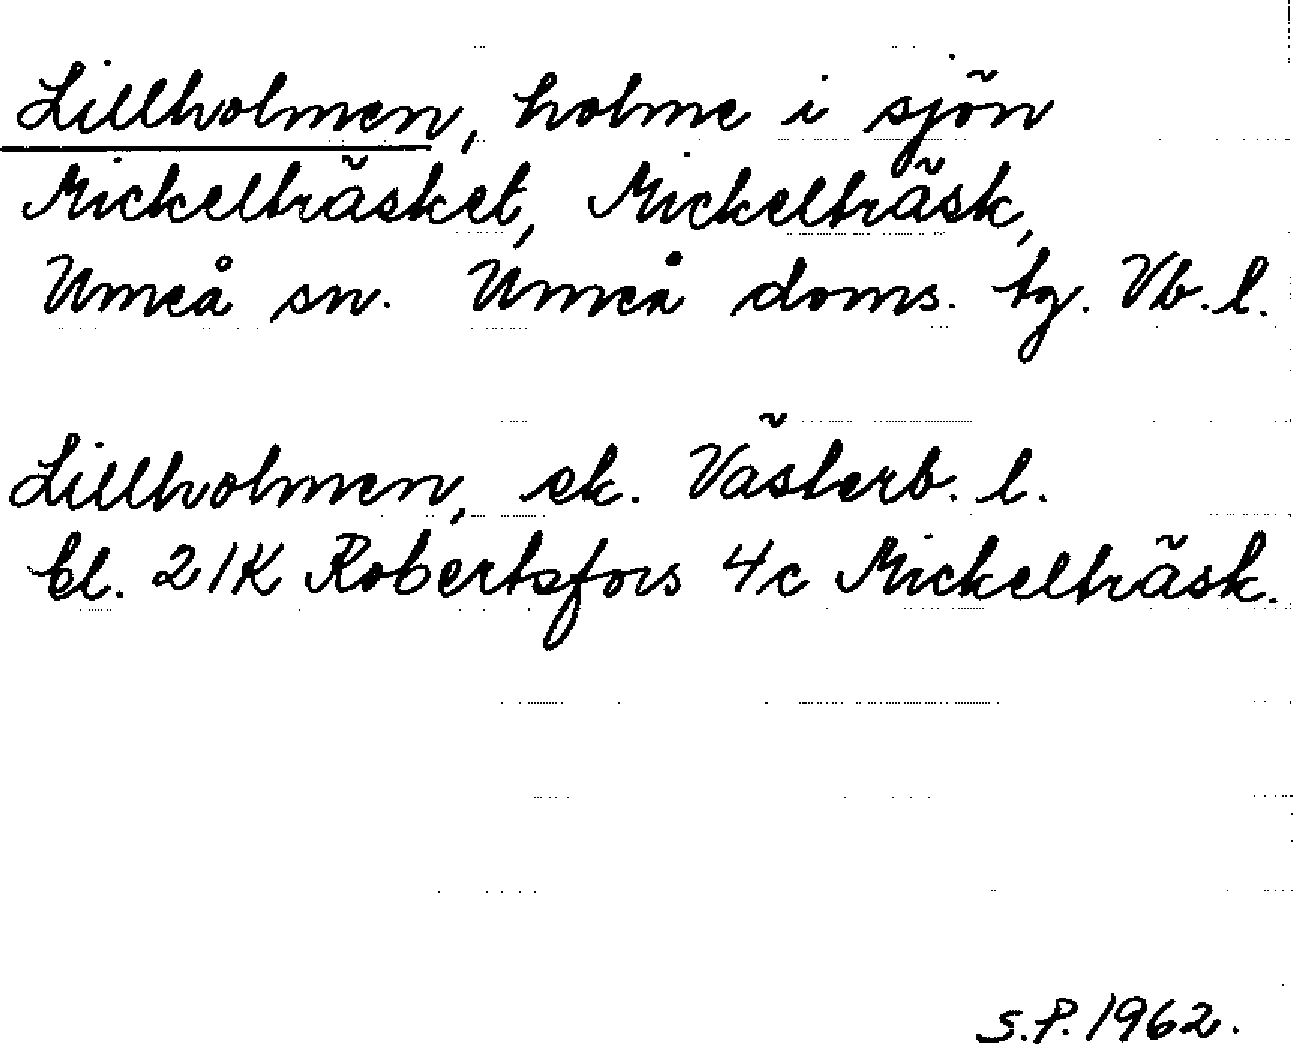 Lillholmen, holme i sjön
Mickelträsket, Mickelträsk,
Umeå sn. Umeå doms. tg. Vb. l.
Lillholmen, ek. Västerb. l.
bl. 21K Robertsfors 4c Mickelträsk.
S.P. 1962.